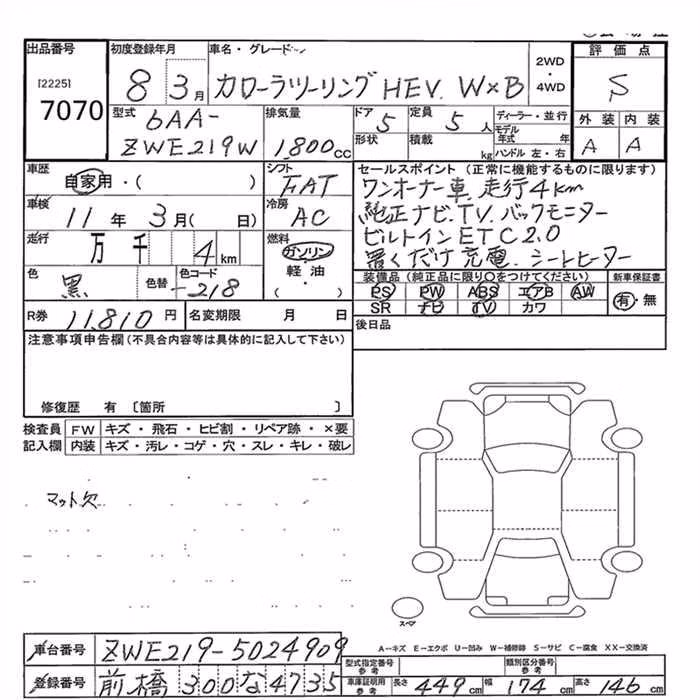 出品番号 初度登録年月 車名・グレード 評価点
[2225] 7070 8 3月 カローラツーリング HEV W×B 2WD・4WD S
型式 排気量 ドア 定員 ディーラー・並行 外装 内装
6AA- 5 5人 モデル年式 年 A A
ZWE219W 1,800cc 形状 積載 kg ハンドル 左・右
車歴 シフト セールスポイント (正常に機能するものに限ります)
自家用・( ) FAT ワンオーナー車 走行4km
車検 11年 3月( 日) 冷房 AC 純正ナビ.TV.バックモニター
走行 万 千 4km 燃料 ガソリン・軽油・( ) ビルトインETC2.0
色 黒 色替 色コード -218 置くだけ充電 シートヒーター
装備品 (純正品に限り○をつけてください) 新車保証書
PS PW ABS エアB AW 有・無
SR ナビ TV カワ
R券 11,810円 名変期限 月 日 後日品
注意事項申告欄(不具合内容等は具体的に記入して下さい)
修復歴 有 〔箇所 〕
検査員 FW キズ・飛石・ヒビ割・リペア跡・×要
記入欄 内装 キズ・汚レ・コゲ・穴・スレ・キレ・破レ
マット欠
スペア
A―キズ E―エクボ U―凹み W―補修跡 S―サビ C―腐食 XX―交換済
車台番号 ZWE219-5024909 型式指定番号 参考 類別区分番号 参考
登録番号 前橋 300 な 4735 車庫証明用 参考 長さ 449cm 幅 174cm 高さ 146cm